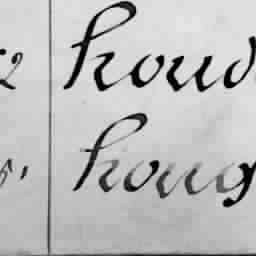 2 houd
5, houg